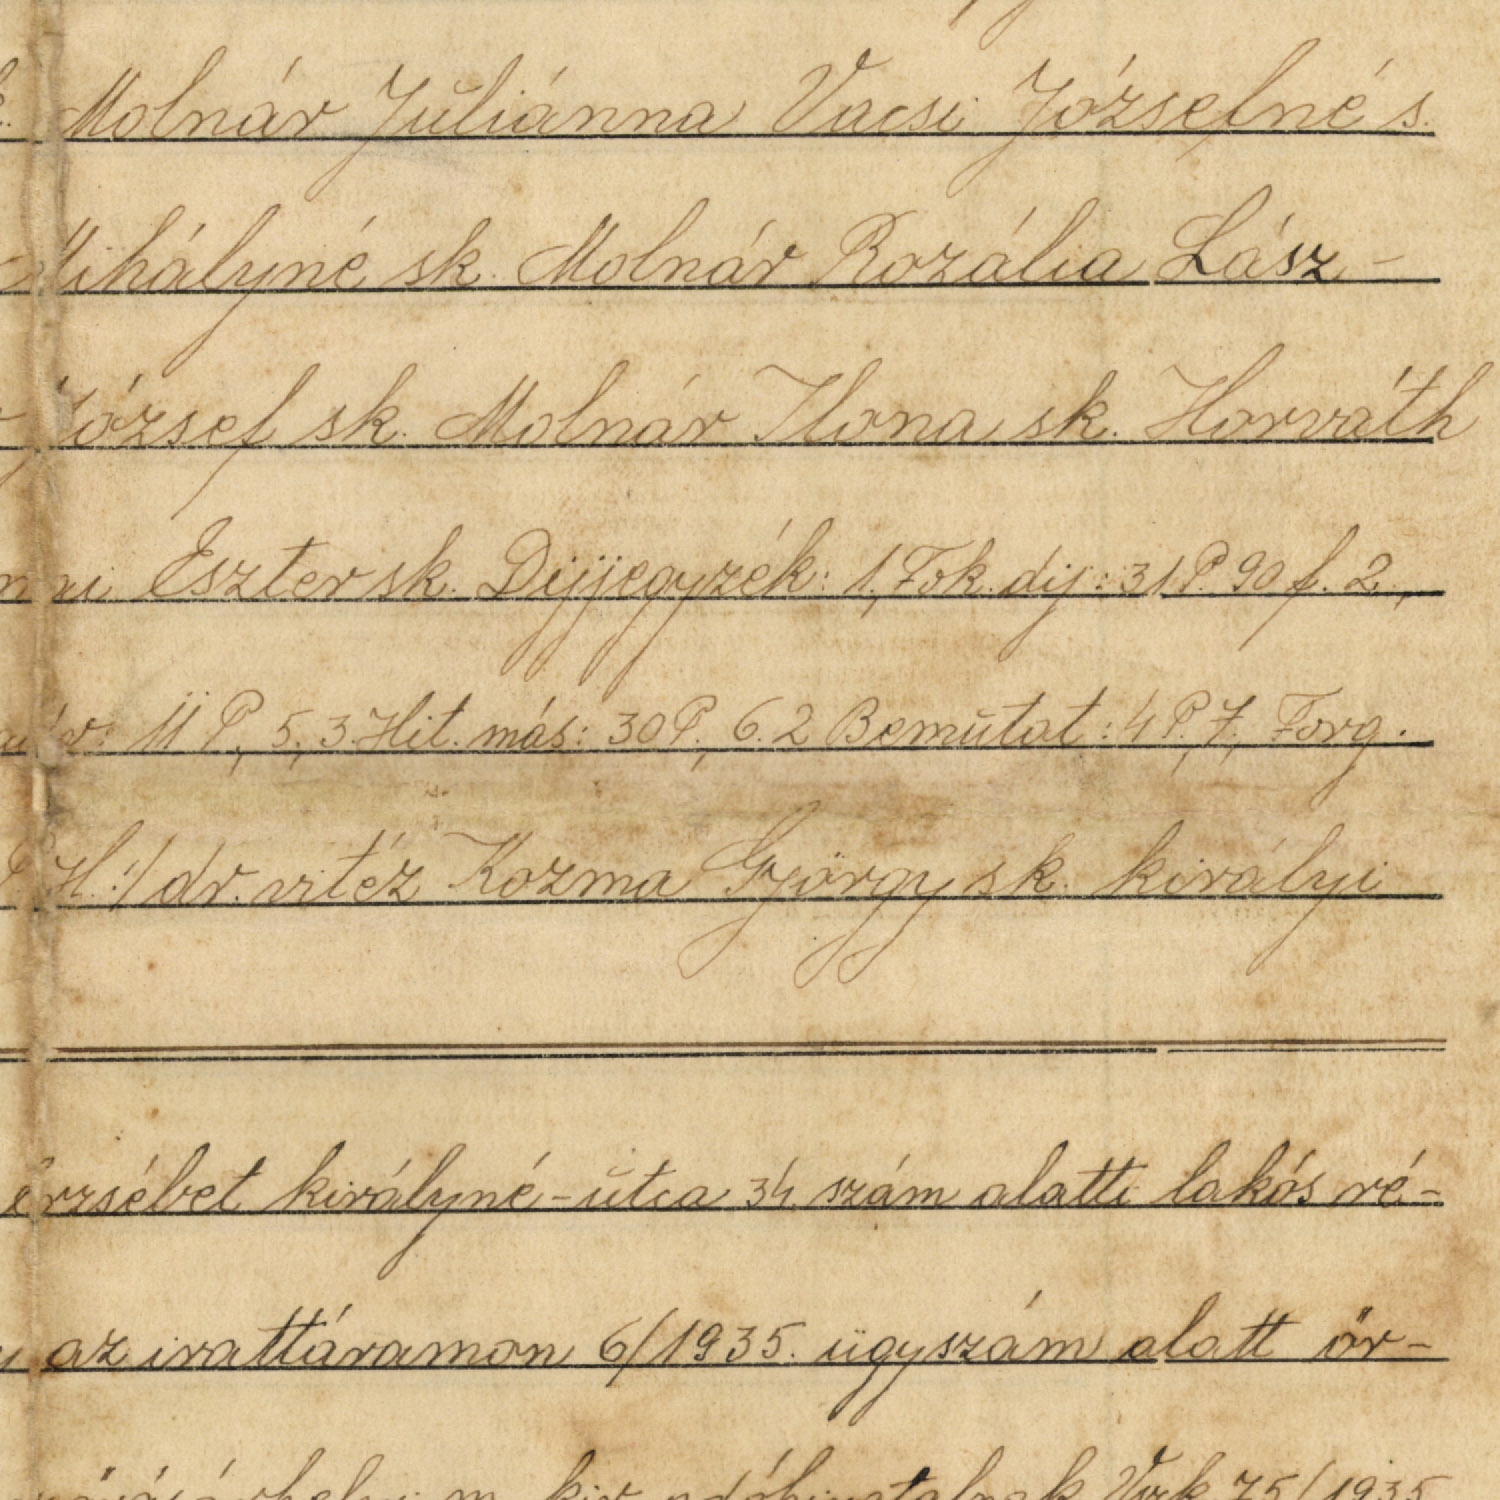 Molnár Juliánna Vacsi Józsefné s.
Mihályné sk. Molnár Rozália Lász-
József sk. Molnár Ilona sk. Horváth
Eszter sk. Díjjegyzék: 1, Fok. díj: 31 P. 90 f. 2.,
11 P, 5, 3 Hit. más: 30 P., 6. 2 Bemutat: 4 P., 7, Forg.
H./ dr. vitéz Kozma György sk. királyi
Erzsébet királyné-utca 34 szám alatti lakós ré-
az irattáramon 6/1935. ügyszám alatt őr-
m. kir. adóhivatalnak 75/1935